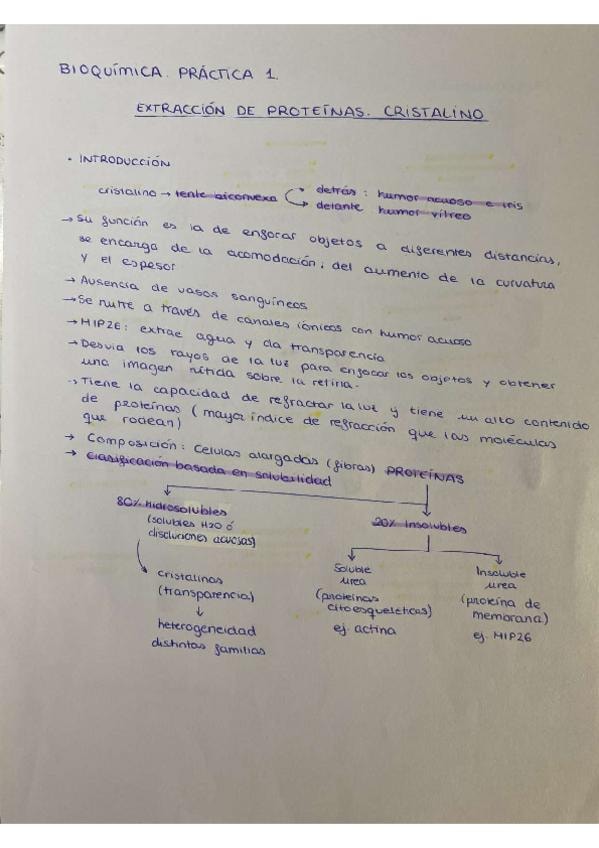 BIOQUÍMICA. PRÁCTICA 1.
EXTRACCIÓN DE PROTEÍNAS. CRISTALINO
• INTRODUCCIÓN
cristalino → lente biconvexa
detrás: humor acuoso e iris
delante humor vítreo
→ Su función es la de enfocar objetos a diferentes distancias,
se encarga de la acomodación, del aumento de la curvatura
y el espesor
→ Ausencia de vasos sanguíneos
→ Se nutre a través de canales iónicos con humor acuoso
→ MIP26: extrae agua y da transparencia
→ Desvia los rayos de la luz para enfocar los objetos y obtener
una imagen nítida sobre la retina.
→ Tiene la capacidad de refractar la luz y tiene un alto contenido
de proteínas (mayor índice de refracción que las moléculas
que rodean)
→ Composición: Celulas alargadas (fibras) PROTEÍNAS
→ Clasificación basada en solubilidad
80% Hidrosolubles
(solubles H2O ó
disoluciones acuosas)
cristalinas
(transparencia)
↓
heterogeneidad
distintas familias
20% Insolubles
Soluble
urea
(proteínas
citoesqueléticas)
ej. actina
Insoluble
urea
(proteína de
membrana)
ej. MIP26